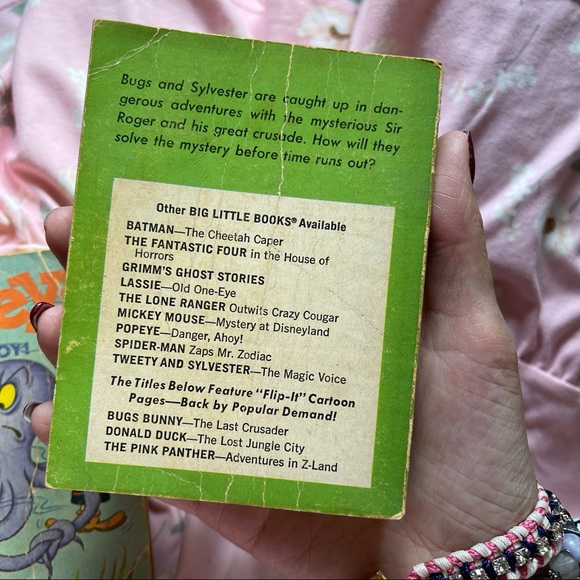 Bugs and Sylvester are caught up in dan-
gerous adventures with the mysterious Sir
Roger and his great crusade. How will they
solve the mystery before time runs out?
Other BIG LITTLE BOOKS® Available
BATMAN—The Cheetah Caper
THE FANTASTIC FOUR in the House of
Horrors
GRIMM'S GHOST STORIES
LASSIE—Old One-Eye
THE LONE RANGER Outwits Crazy Cougar
MICKEY MOUSE—Mystery at Disneyland
POPEYE—Danger, Ahoy!
SPIDER-MAN Zaps Mr. Zodiac
TWEETY AND SYLVESTER—The Magic Voice
The Titles Below Feature "Flip-It" Cartoon
Pages—Back by Popular Demand!
BUGS BUNNY—The Last Crusader
DONALD DUCK—The Lost Jungle City
THE PINK PANTHER—Adventures in Z-Land